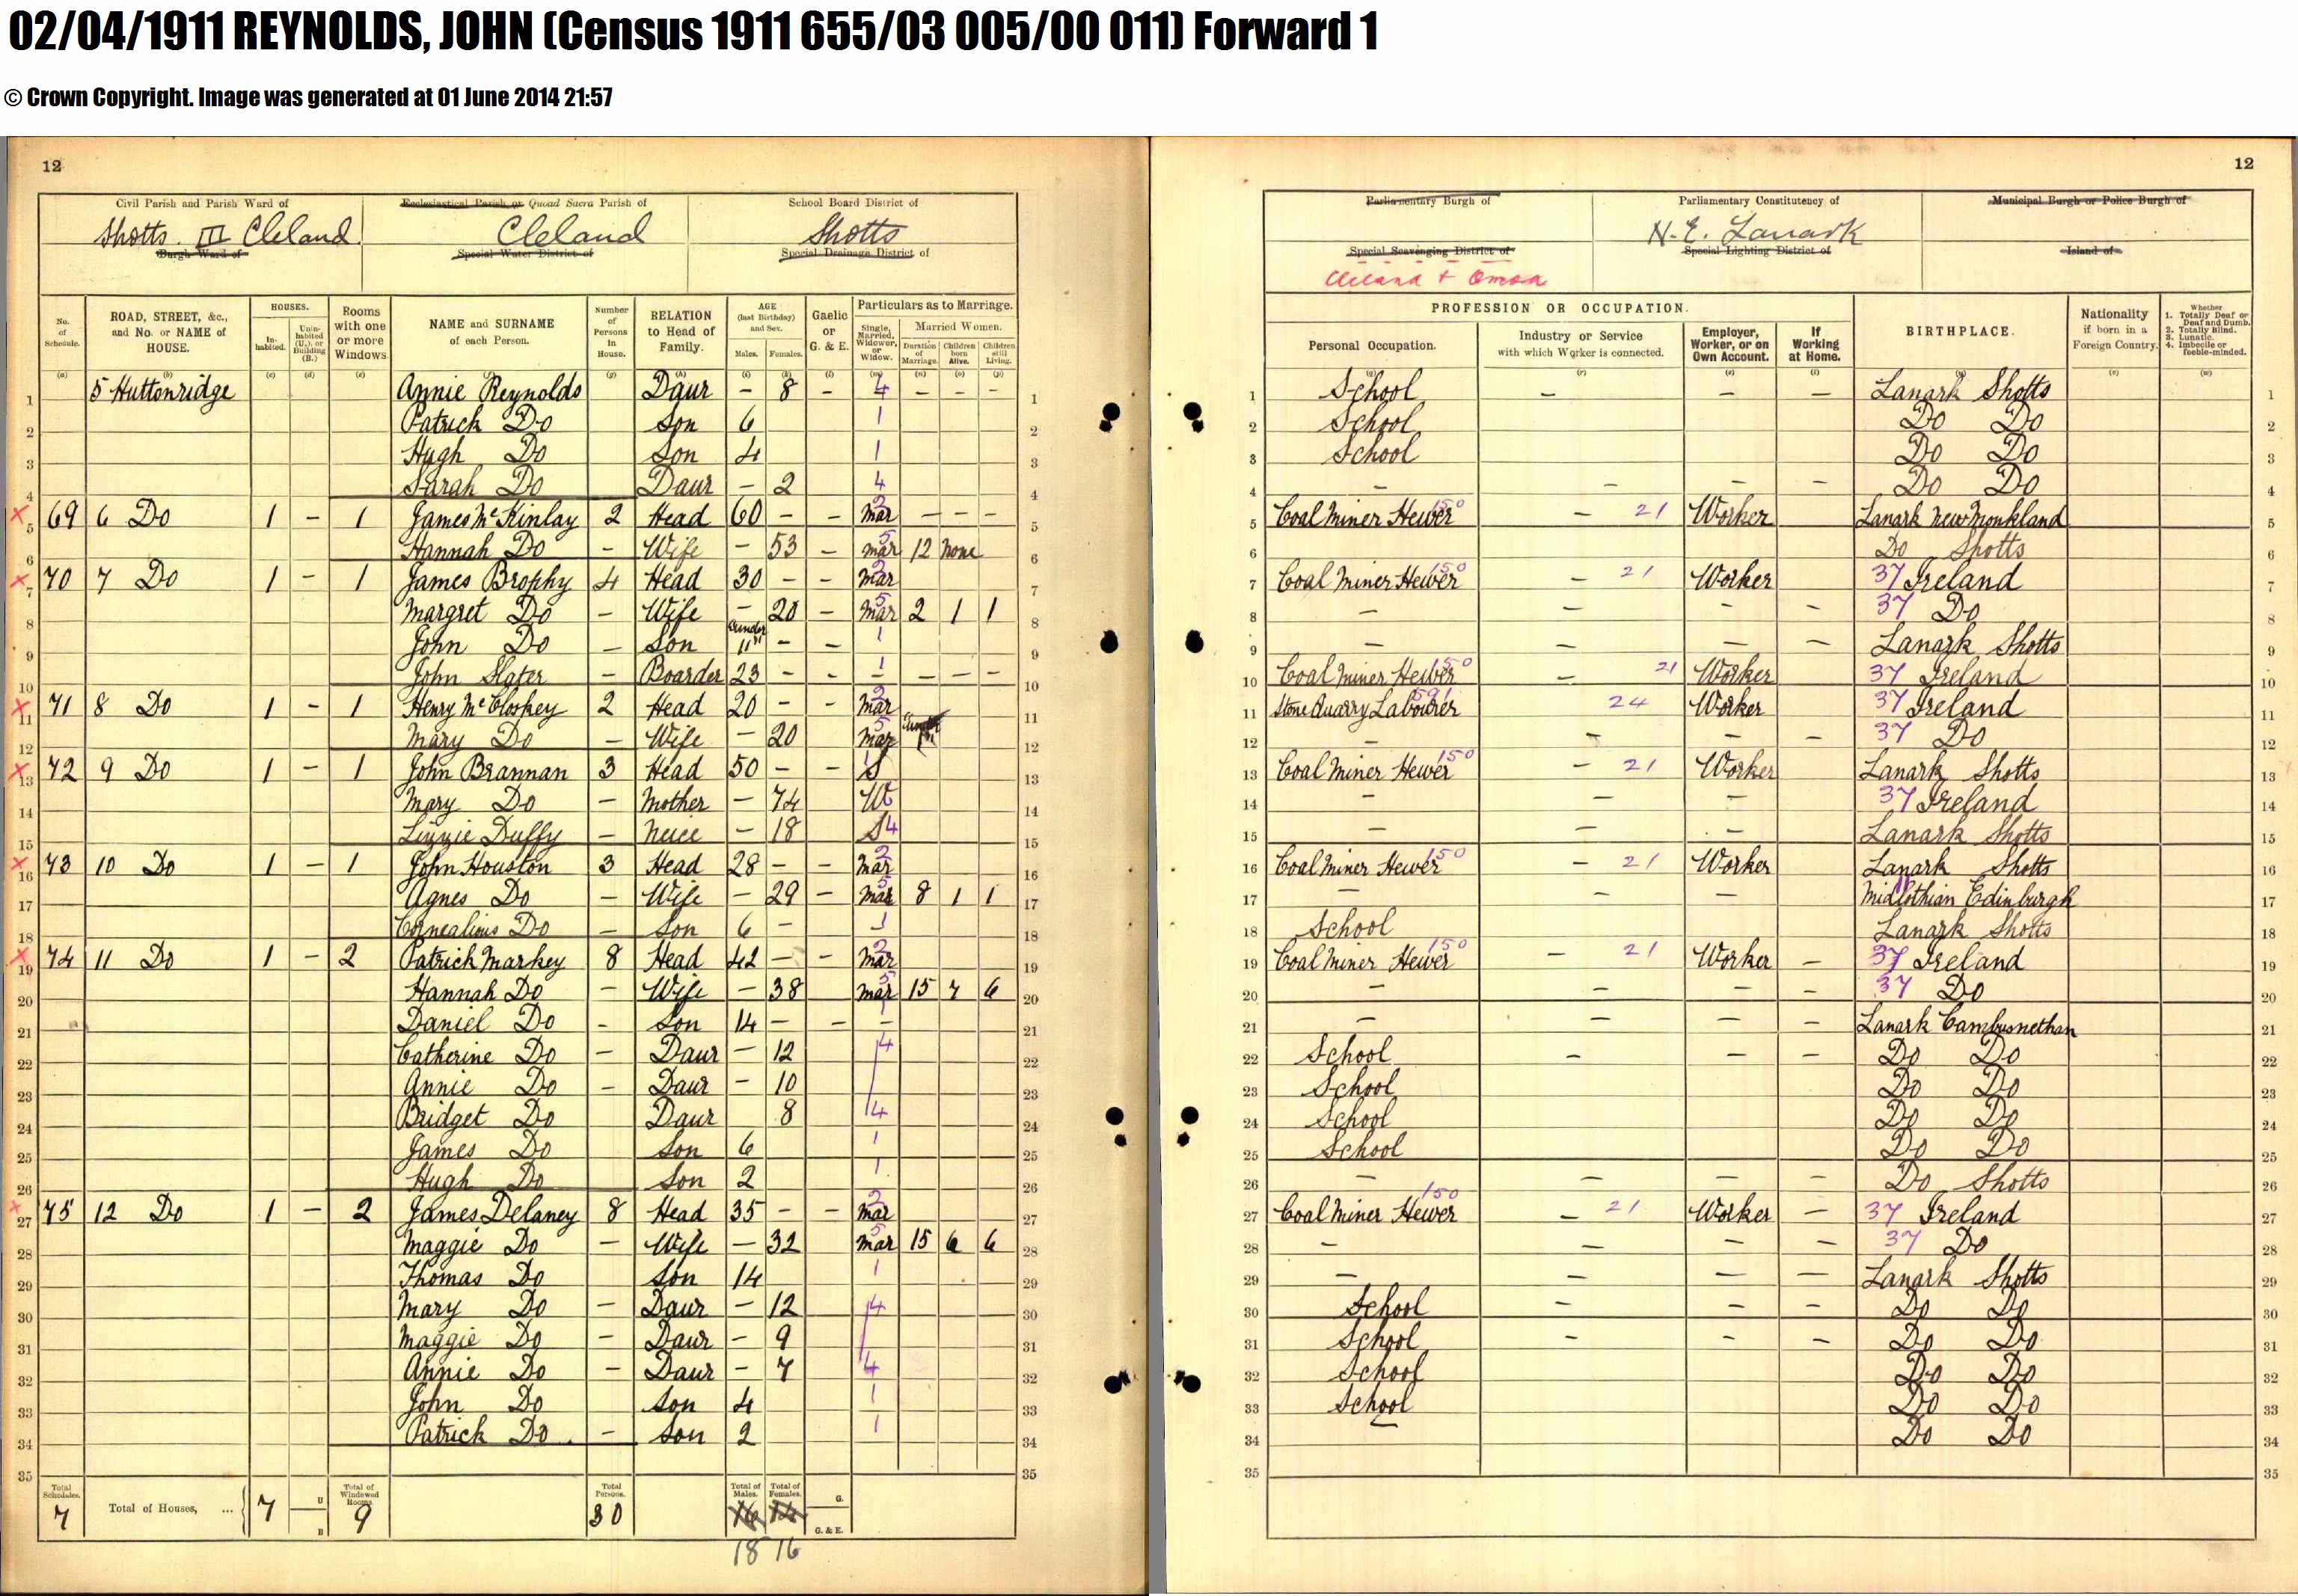 02/04/1911 REYNOLDS, JOHN (Census 1911 655/03 005/00 011) Forward 1
© Crown Copyright. Image was generated at 01 June 2014 21:57
12
12
Civil Parish and Parish Ward of Ecclesiastical Parish or Quoad Sacra Parish of School Board District of
Shotts. III Cleland Cleland Shotts
Burgh Ward of Special Water District of Special Drainage District of
Parliamentary Burgh of Parliamentary Constitutency of Municipal Burgh or Police Burgh of
N. E. Lanark
Special Scavenging District of Special Lighting District of Island of
Cleland + Omoa
No. of Schedule. ROAD, STREET, &c., and No. or NAME of HOUSE. HOUSES. Inhabited. Uninhabited (U.), or Building (B.) Rooms with one or more Windows NAME and SURNAME of each Person. Number of Persons in House. RELATION to Head of Family. AGE (last Birthday) and Sex. Males. Females. Gaelic or G. & E. Particulars as to Marriage. Single, Married, Widower, or Widow. Married Women. Duration of Marriage. Children born Alive. Children still Living.
PROFESSION OR OCCUPATION. Personal Occupation. Industry or Service with which Worker is connected. Employer, Worker, or on Own Account. If Working at Home. BIRTHPLACE. Nationality if born in a Foreign Country. Whether 1. Totally Deaf or Deaf and Dumb. 2. Totally Blind. 3. Lunatic. 4. Imbecile or feeble-minded.
1 5 Huttonridge Annie Reynolds Daur – 8 – 4 – – – 1 1 School – – – Lanark Shotts 1
2 Patrick Do Son 6 1 2 2 School Do Do 2
3 Hugh Do Son 4 1 3 3 School Do Do 3
4 Sarah Do Daur – 2 4 4 4 – – – – Do Do 4
5 69 6 Do 1 – 1 James McKinlay 2 Head 60 – – Mar 2 – – – 5 5 Coal Miner Hewer 150 – 21 Worker Lanark New Monkland 5
6 Hannah Do – Wife – 53 – Mar 5 12 None 6 6 Do Shotts 6
7 70 7 Do 1 – 1 James Brophy 4 Head 30 – – Mar 2 7 7 Coal Miner Hewer 150 – 21 Worker 37 Ireland 7
8 Margret Do – Wife – 20 – Mar 5 2 1 1 8 8 – – – – 37 Do 8
9 John Do – Son under 11m – – 1 9 9 – – – – Lanark Shotts 9
10 John Slater – Boarder 23 – – 1 – – – – 10 10 Coal Miner Hewer 150 – 21 Worker 37 Ireland 10
11 71 8 Do 1 – 1 Henry McCloskey 2 Head 20 – – Mar 2 11 11 Stone Quarry Labourer 591 24 Worker 37 Ireland 11
12 Mary Do – Wife – 20 Mar 5 12 12 – – – – 37 Do 12
13 72 9 Do 1 – 1 John Brannan 3 Head 50 – – S 1 13 13 Coal Miner Hewer 150 – 21 Worker Lanark Shotts 13
14 Mary Do – Mother – 74 W 14 14 – – – 37 Ireland 14
15 Lizzie Duffy – Neice – 18 S 4 15 15 – – – Lanark Shotts 15
16 73 10 Do 1 – 1 John Houston 3 Head 28 – – Mar 2 16 16 Coal Miner Hewer 150 – 21 Worker Lanark Shotts 16
17 Agnes Do – Wife – 29 – Mar 5 8 1 1 17 17 – – – Midlothian Edinburgh 17
18 Cornealious Do – Son 6 – 1 18 18 School Lanark Shotts 18
19 74 11 Do 1 – 2 Patrick Markey 8 Head 42 – – Mar 2 19 19 Coal Miner Hewer 150 – 21 Worker – 37 Ireland 19
20 Hannah Do – Wife – 38 Mar 5 15 7 6 20 20 – – – – 37 Do 20
21 Daniel Do – Son 14 – – – 21 21 – – – – Lanark Cambusnethan 21
22 Catherine Do – Daur – 12 4 22 22 School – – – Do Do 22
23 Annie Do – Daur – 10 23 23 School Do Do 23
24 Bridget Do Daur 8 4 24 24 School Do Do 24
25 James Do Son 6 1 25 25 School Do Do 25
26 Hugh Do Son 2 1 26 26 – – – – Do Shotts 26
27 75 12 Do 1 – 2 James Delaney 8 Head 35 – – Mar 2 27 27 Coal Miner Hewer 150 – 21 Worker – 37 Ireland 27
28 Maggie Do – Wife – 32 Mar 5 15 6 6 28 28 – – – – 37 Do 28
29 Thomas Do Son 14 1 29 29 – – – – Lanark Shotts 29
30 Mary Do – Daur – 12 4 30 30 School – – – Do Do 30
31 Maggie Do – Daur – 9 31 31 School – – – Do Do 31
32 Annie Do – Daur – 7 4 32 32 School Do Do 32
33 John Do Son 4 1 33 33 School Do Do 33
34 Patrick Do – Son 2 1 34 34 – Do Do 34
35 35 35 35
Total Schedules. 7 Total of Houses, ... 7 U B Total of Windowed Rooms. 9 Total Persons. 30 Total of Males. Total of Females. G. G. & E.
18 16